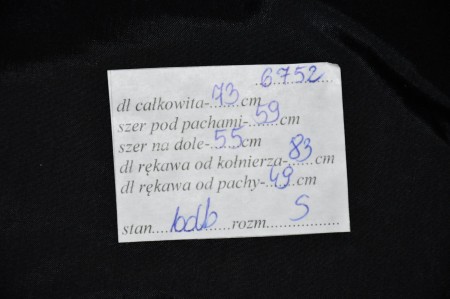 6752
dl całkowita-73cm
szer pod pachami-59cm
szer na dole-55cm
dl rękawa od kołnierza-83cm
dl rękawa od pachy-49cm
stan bdb rozm S